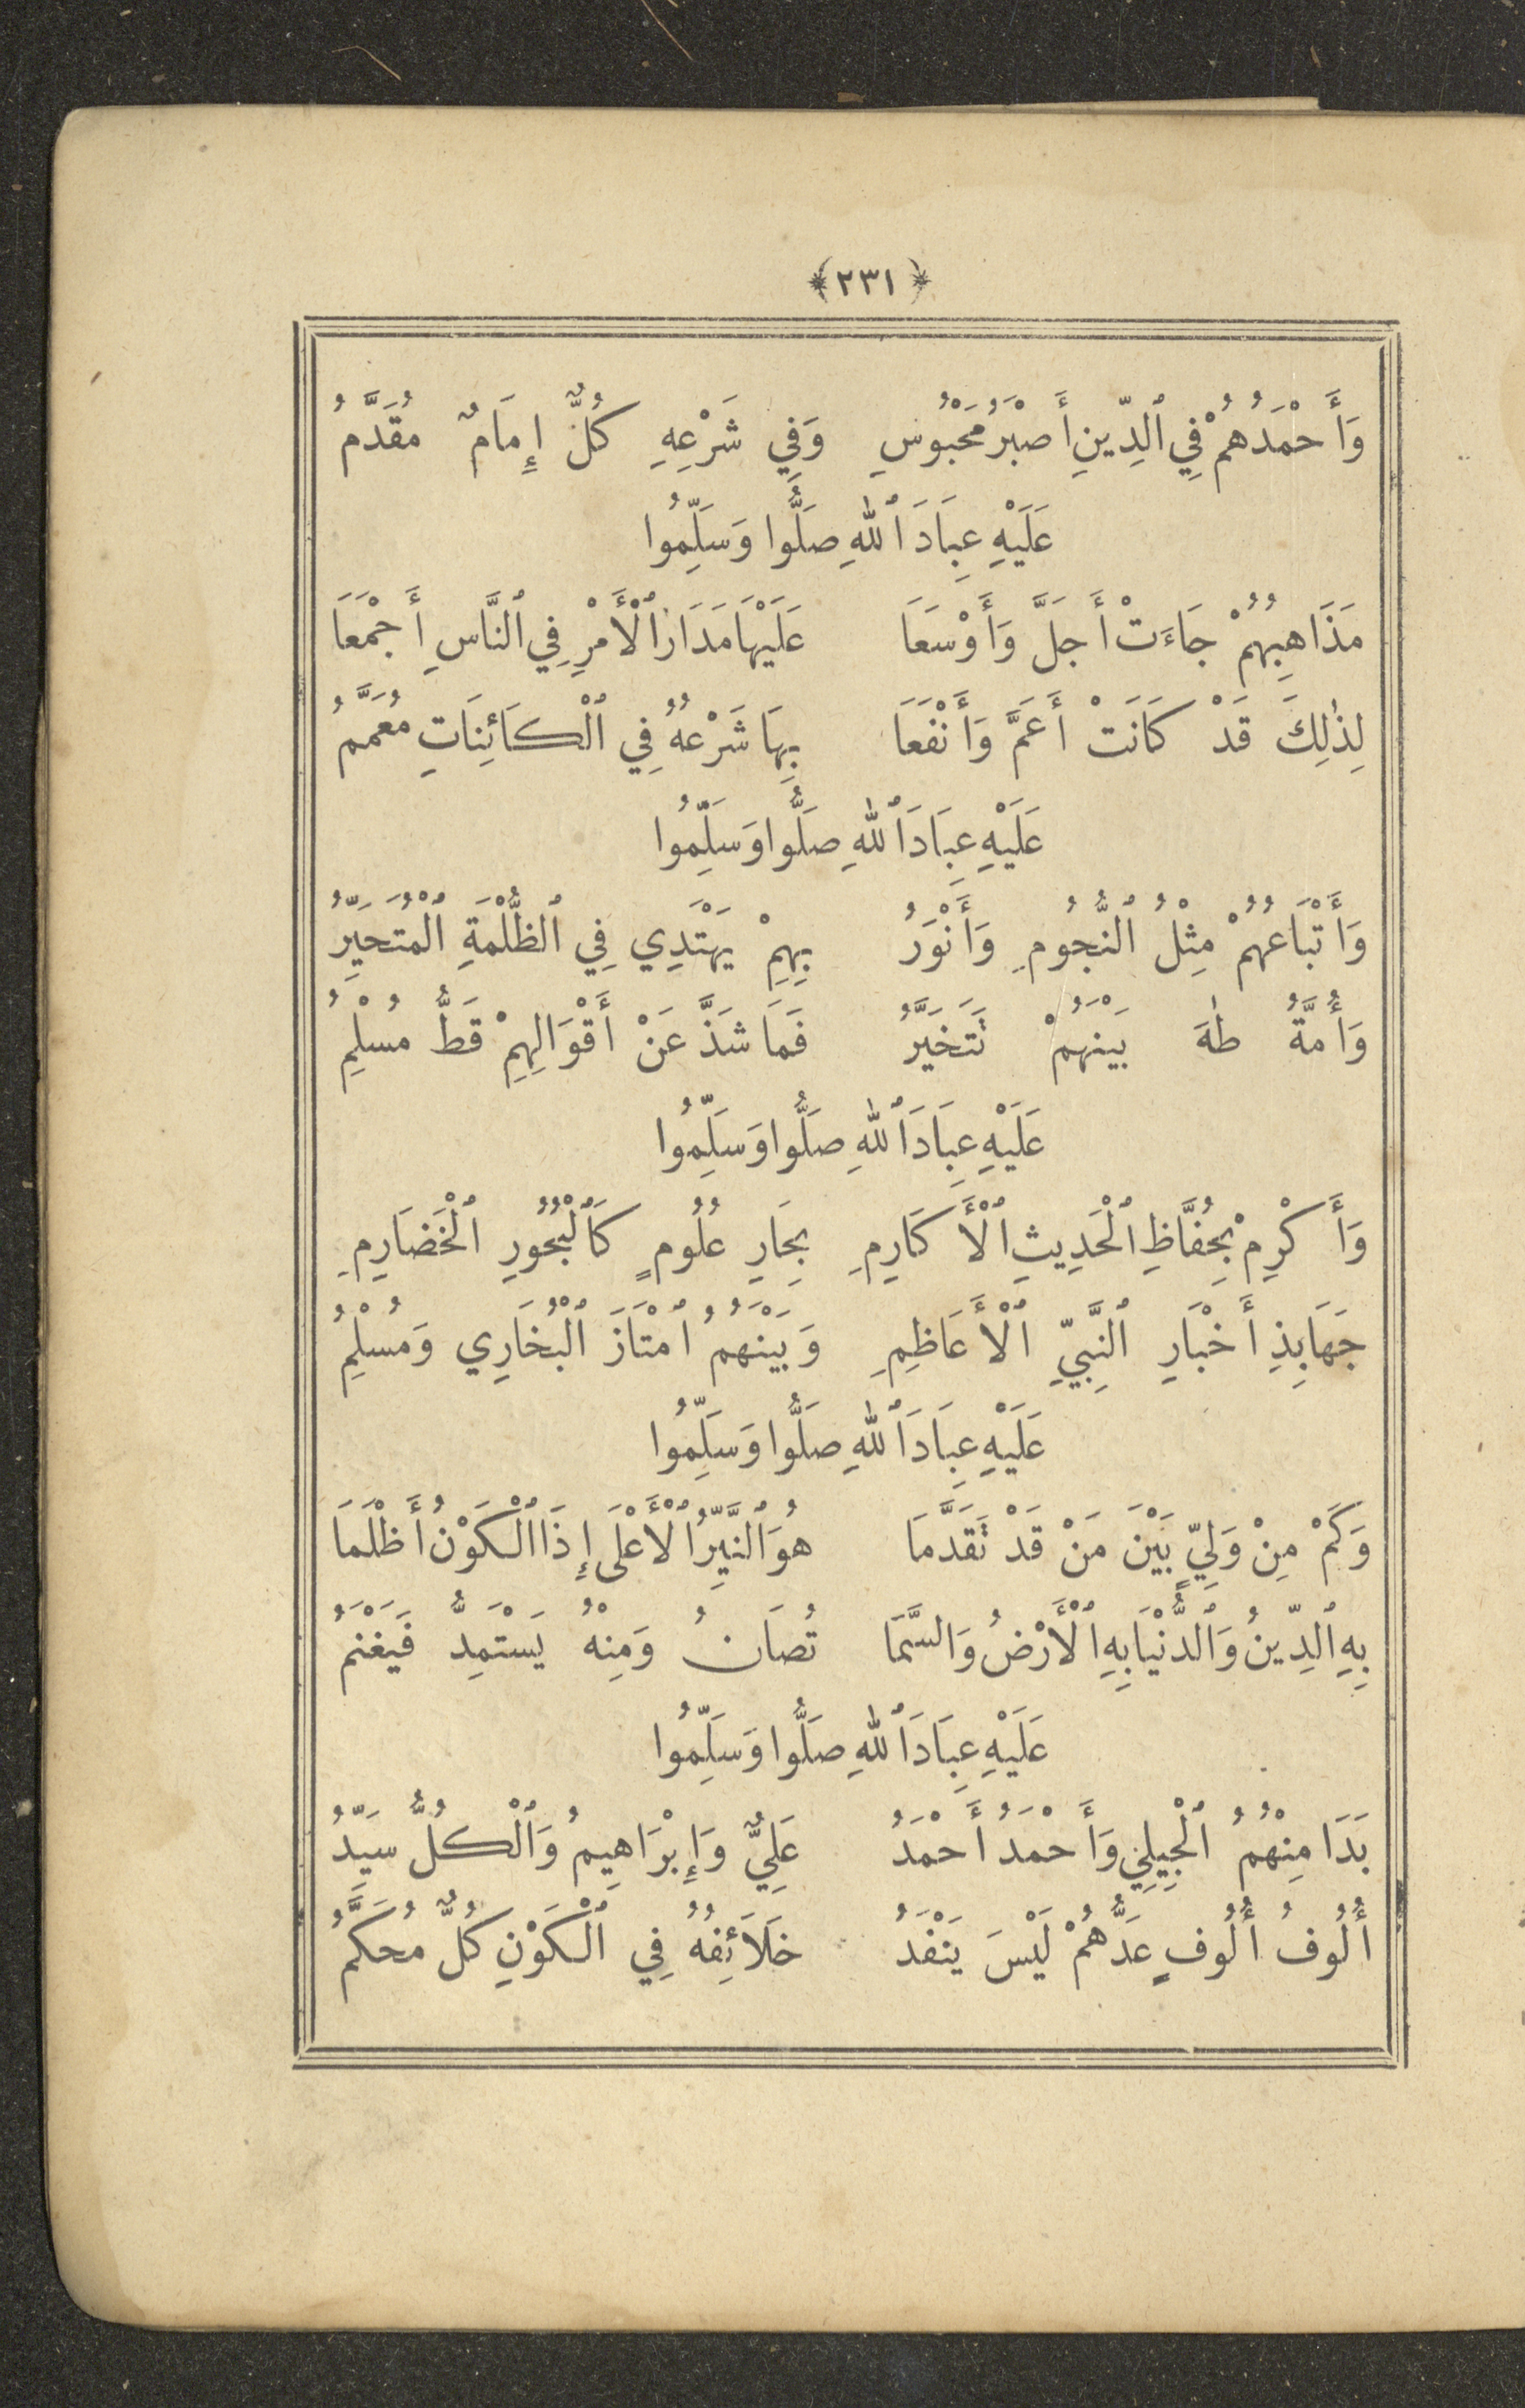 ﴿٢٣١﴾
وَأَحْمَدُهُمْ فِي ٱلدِّينِ أَصْبَرُ مَحْبُوسِ وَفِي شَرْعِهِ كُلٌّ إِمَامٌ مُقَدَّمُ
عَلَيْهِ عِبَادَ ٱللهِ صَلُّوا وَسَلِّمُوا
مَذَاهِبُهُمْ جَاءَتْ أَجَلَّ وَأَوْسَعَا عَلَيْهَا مَدَارُ ٱلْأَمْرِ فِي ٱلنَّاسِ أَجْمَعَا
لِذٰلِكَ قَدْ كَانَتْ أَعَمَّ وَأَنْفَعَا بِهَا شَرْعُهُ فِي ٱلْكَائِنَاتِ مُعَمَّمُ
عَلَيْهِ عِبَادَ ٱللهِ صَلُّوا وَسَلِّمُوا
وَأَتْبَاعُهُمْ مِثْلُ ٱلنُّجُومِ وَأَنْوَرُ بِهِمْ يَهْتَدِي فِي ٱلظُّلْمَةِ ٱلْمُتَحَيِّرُ
وَأُمَّةُ طٰهَ بَيْنَهُمْ تَتَخَيَّرُ فَمَا شَذَّ عَنْ أَقْوَالِهِمْ قَطُّ مُسْلِمُ
عَلَيْهِ عِبَادَ ٱللهِ صَلُّوا وَسَلِّمُوا
وَأَكْرِمْ بِحُفَّاظِ ٱلْحَدِيثِ ٱلْأَكَارِمِ بِحَارِ عُلُومٍ كَٱلْبُحُورِ ٱلْخَضَارِمِ
جَهَابِذِ أَخْبَارِ ٱلنَّبِيِّ ٱلْأَعَاظِمِ وَبَيْنَهُمُ ٱمْتَازَ ٱلْبُخَارِي وَمُسْلِمُ
عَلَيْهِ عِبَادَ ٱللهِ صَلُّوا وَسَلِّمُوا
وَكَمْ مِنْ وَلِيٍّ بَيْنَ مَنْ قَدْ تَقَدَّمَا هُوَ ٱلنَّيِّرُ ٱلْأَعْلَى إِذَا ٱلْكَوْنُ أَظْلَمَا
بِهِ ٱلدِّينُ وَٱلدُّنْيَا بِهِ ٱلْأَرْضُ وَالسَّمَا تُصَانُ وَمِنْهُ يَسْتَمِدُّ فَيَغْنَمُ
عَلَيْهِ عِبَادَ ٱللهِ صَلُّوا وَسَلِّمُوا
بَدَا مِنْهُمُ ٱلْجِيلِي وَأَحْمَدُ أَحْمَدُ عَلِيٌّ وَإِبْرَاهِيمُ وَٱلْكُلُّ سَيِّدُ
أُلُوفُ أُلُوفٍ عَدُّهُمْ لَيْسَ يَنْفَدُ خَلَائِفُهُ فِي ٱلْكَوْنِ كُلٌّ مُحَكَّمُ